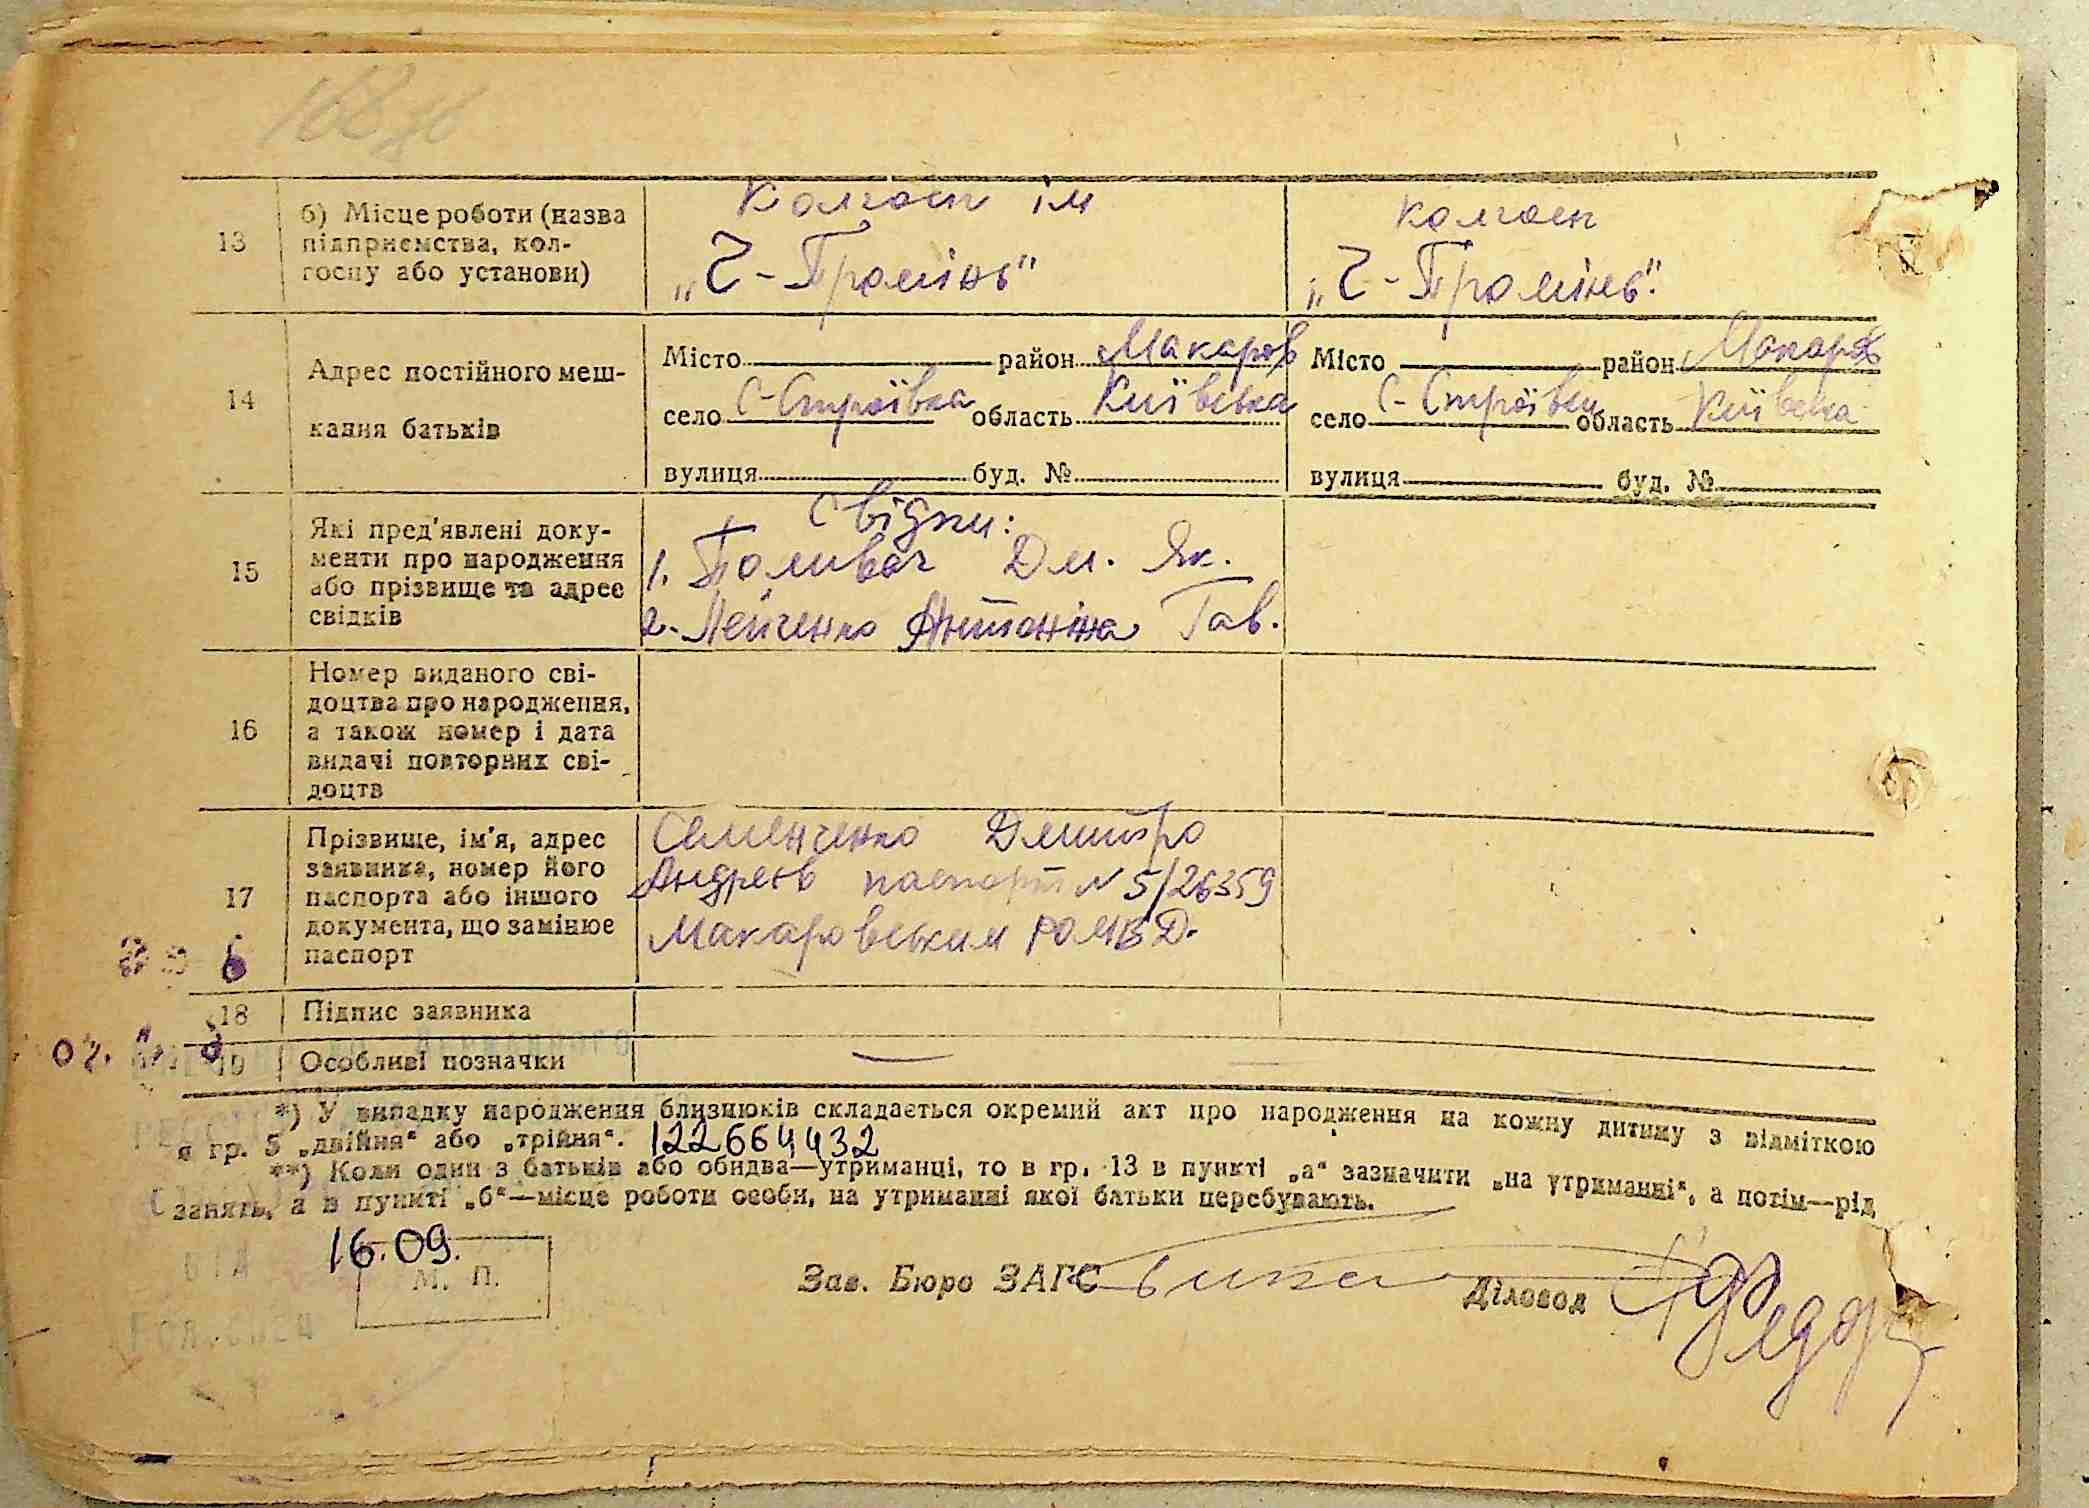 168 зв
13
б) Місце роботи (назва
підприємства, кол-
госпу або установи)
Колгосп ім
„Ч-Промінь"
колгосп
„Ч-Промінь".
14
Адрес постійного меш-
кання батьків
Місто район Макаров
село С-Строївка область Київська
вулиця буд. №
Місто район Макаров
село С-Строївка область Київська
вулиця буд. №
15
Які пред'явлені доку-
менти про народження
або прізвище та адрес
свідків
Свідки:
1. Поливач Дм. Як.
2. Лейченко Антоніна Гав.
16
Номер виданого сві-
доцтва про народження,
а також номер і дата
видачі повторних сві-
доцтв
17
Прізвище, ім'я, адрес
заявника, номер його
паспорта або іншого
документа, що замінює
паспорт
Семенченко Дмитро
Андреєв паспорт № 5/26359
Макаровським РОМВД.
18
Підпис заявника
19
Особливі позначки
*) У випадку народження близнюків складається окремий акт про народження на кожну дитину з відміткою
в гр. 5 „двійня“ або „трійня“. 122664432
**) Коли один з батьків або обидва—утриманці, то в гр. 13 в пункті „а“ зазначити „на утриманні“, а потім—рід
занять, а в пункті „б“—місце роботи особи, на утриманні якої батьки перебувають.
16.09.
М. П.
Зав. Бюро ЗАГС
Діловод